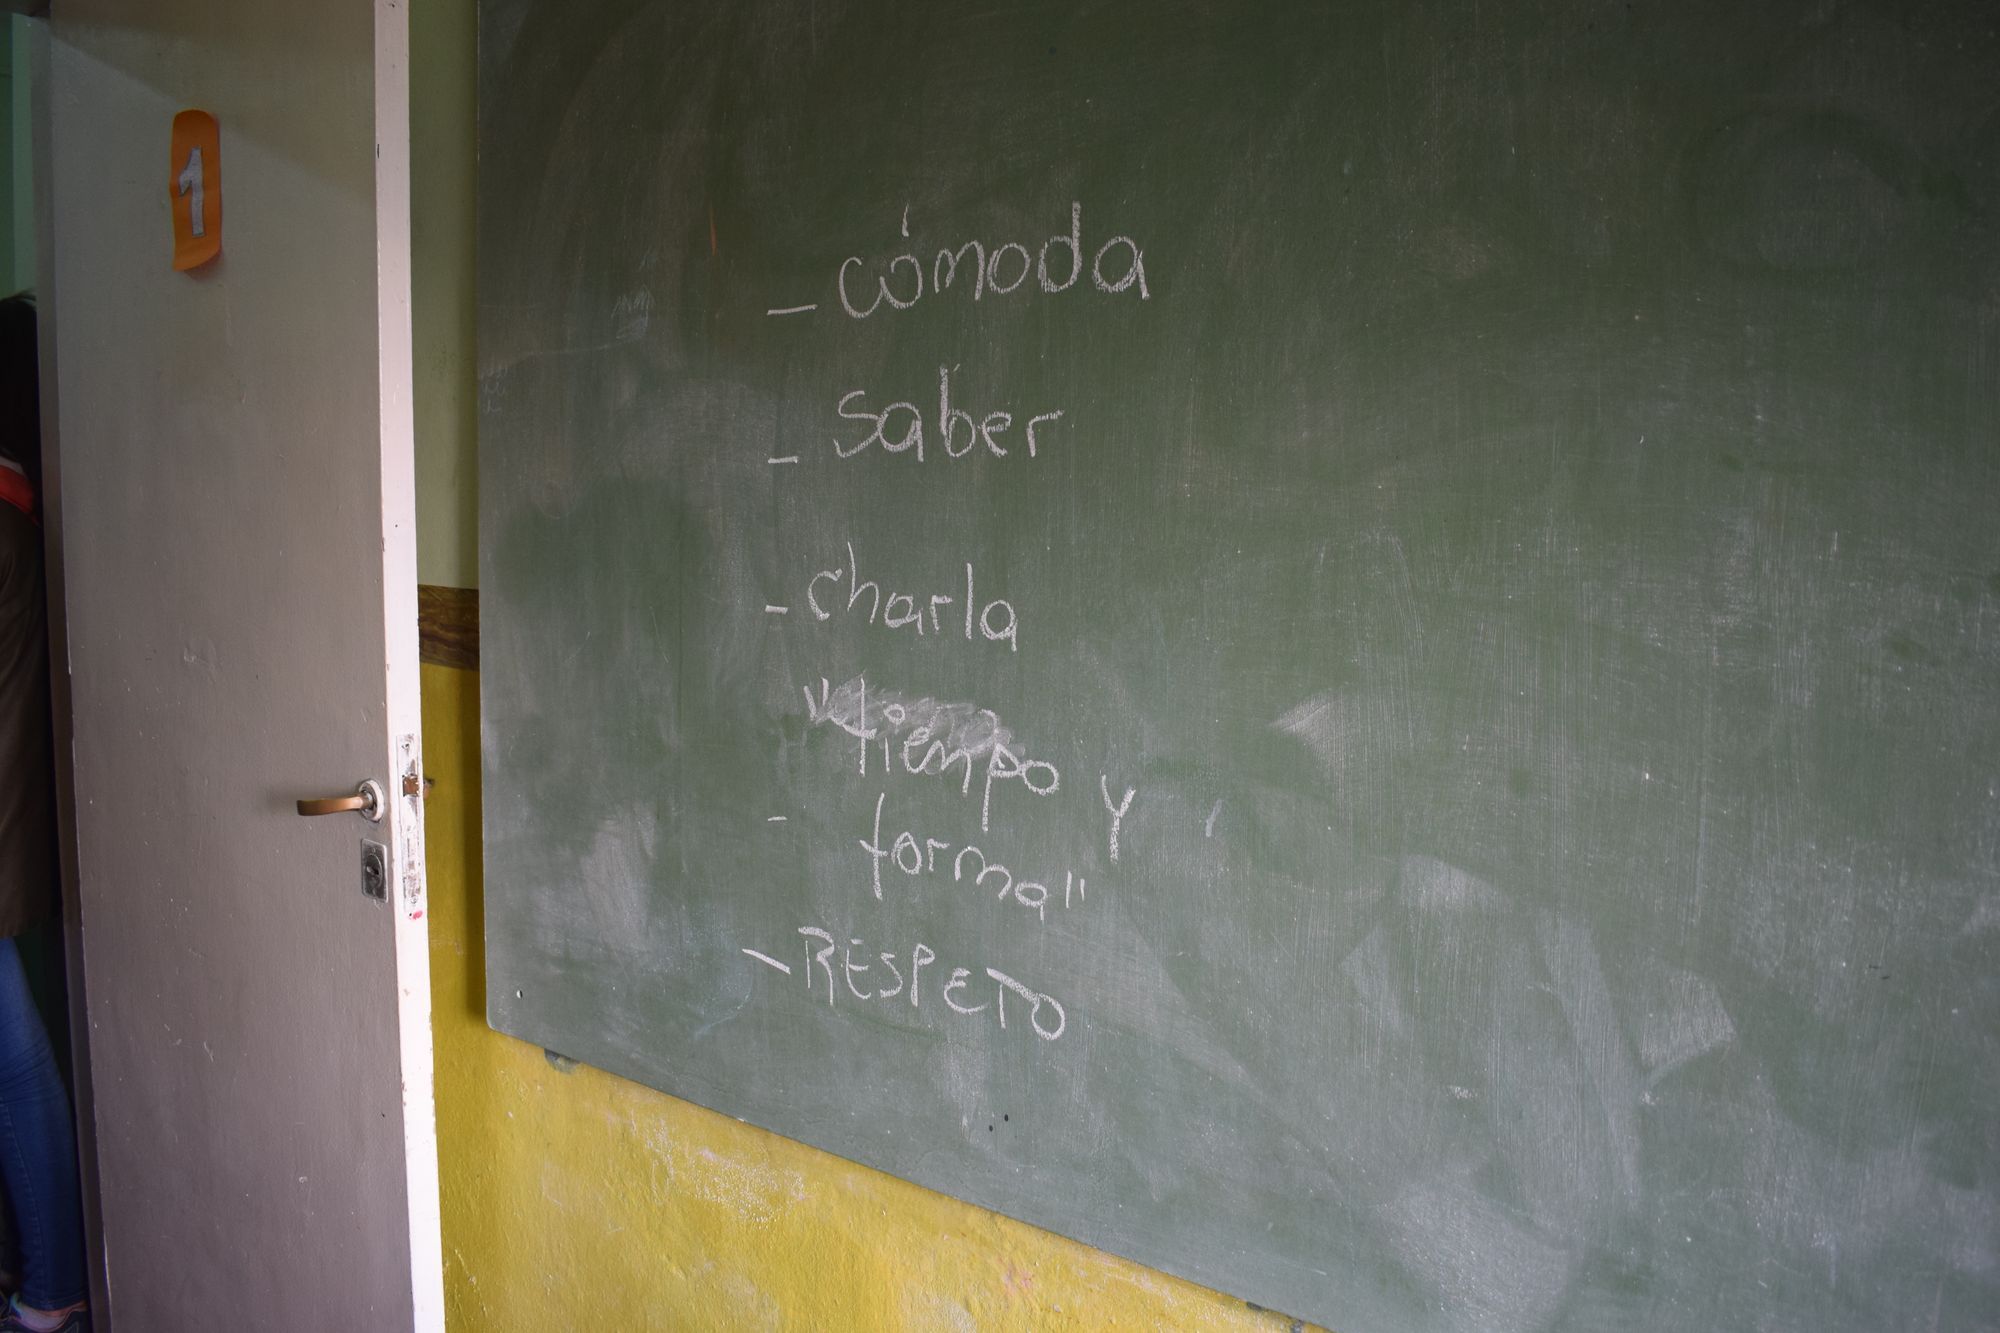 1
- cómoda
- saber
- charla
"tiempo y
- forma"
- RESPETO